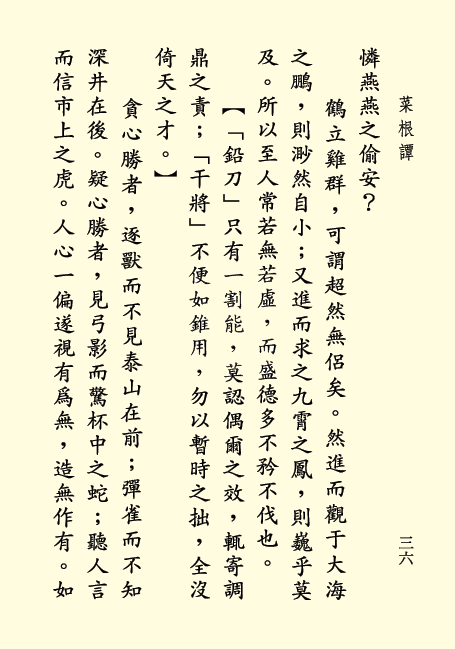 菜根譚
三六
憐燕燕之偷安？
鶴立雞群，可謂超然無侶矣。然進而觀于大海
之鵬，則渺然自小；又進而求之九霄之鳳，則巍乎莫
及。所以至人常若無若虛，而盛德多不矜不伐也。
【「鉛刀」只有一割能，莫認偶爾之效，輒寄調
鼎之責；「干將」不便如錐用，勿以暫時之拙，全沒
倚天之才。】
貪心勝者，逐獸而不見泰山在前；彈雀而不知
深井在後。疑心勝者，見弓影而驚杯中之蛇；聽人言
而信市上之虎。人心一偏遂視有為無，造無作有。如